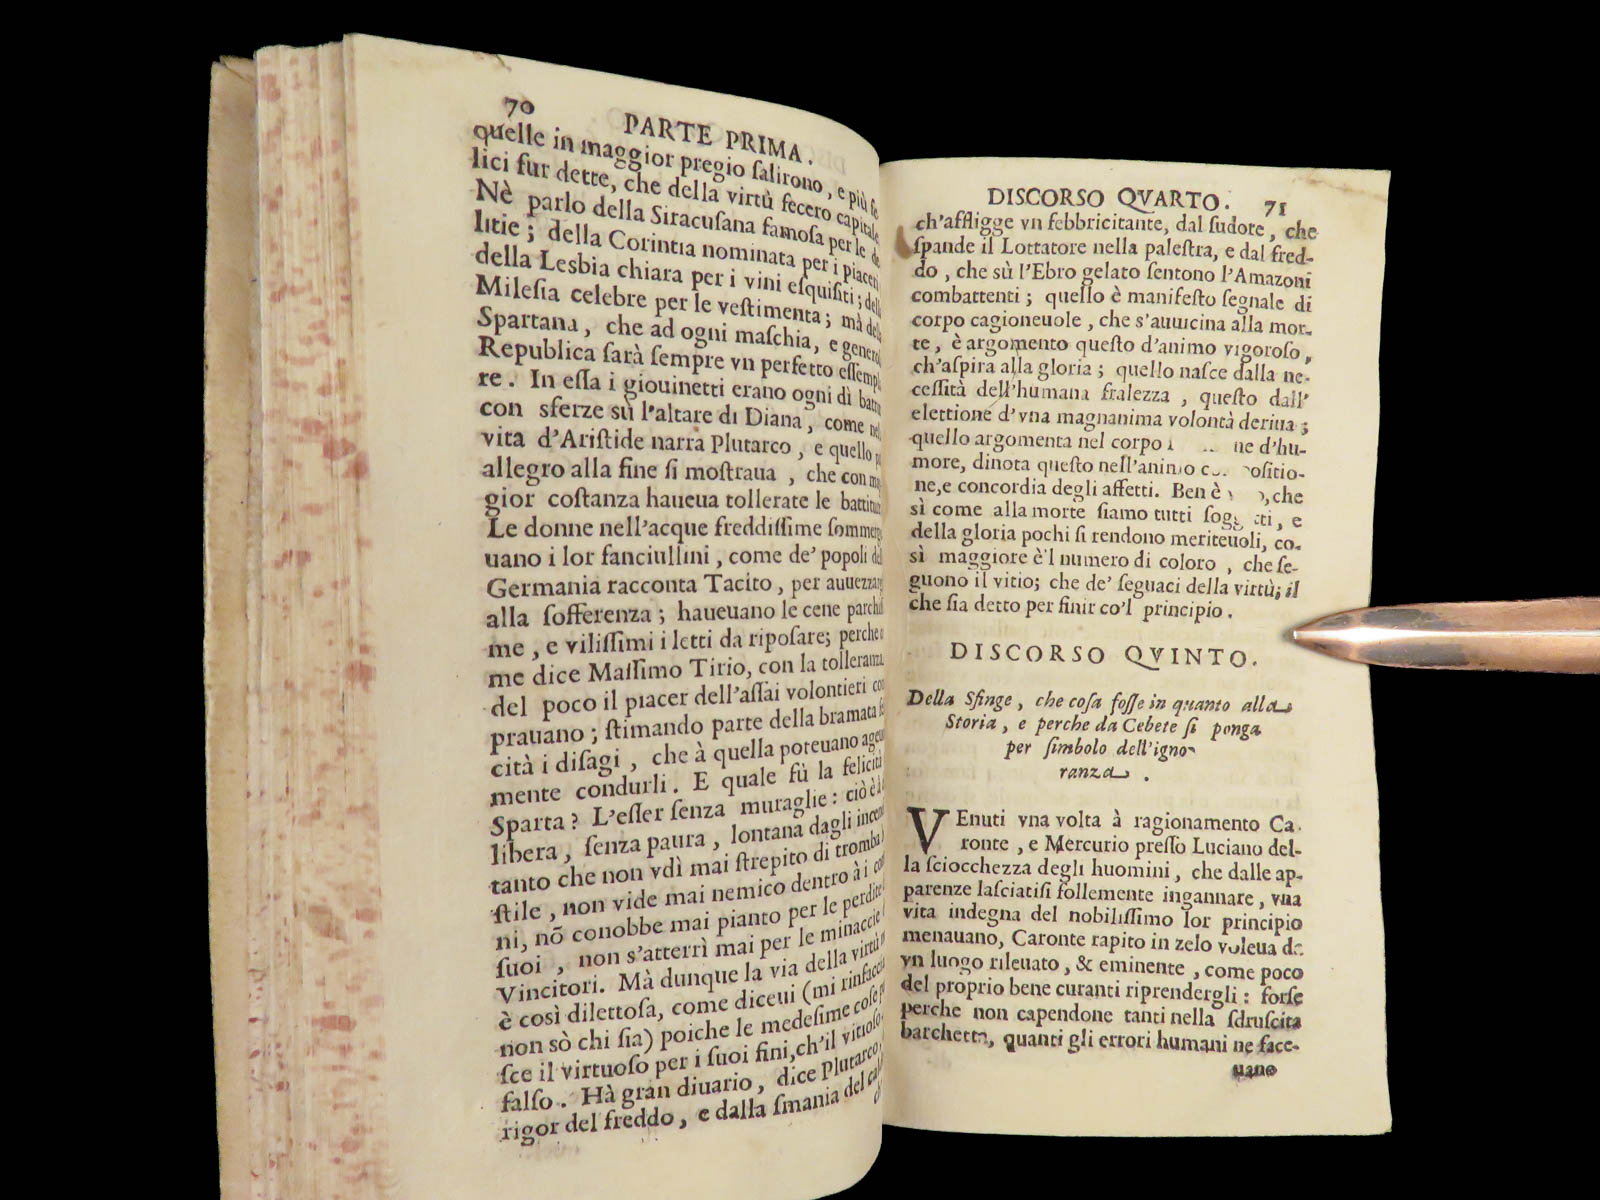 70
PARTE PRIMA.
quelle in maggior pregio ſalirono, e più ſe
lici fur dette, che della virtù fecero capitale
Nè parlo della Siracuſana famoſa per le de
litie; della Corintia nominata per i piaceri
della Lesbia chiara per i vini eſquiſiti; della
Mileſia celebre per le veſtimenta; mà della
Spartana, che ad ogni maſchia, e genero
Republica ſarà ſempre vn perfetto eſſempla
re. In eſſa i giouinetti erano ogni dì battu
con sferze sù l'altare di Diana, come nel
vita d'Ariſtide narra Plutarco, e quello
allegro alla fine ſi moſtraua, che con mag
gior coſtanza haueua tollerate le battitu
Le donne nell'acque freddiſſime ſommerg
uano i lor fanciullini, come de' popoli del
Germania racconta Tacito, per auuezzar
alla ſofferenza; haueuano le cene parchiſ
me, e viliſſimi i letti da ripoſare; perche
me dice Maſſimo Tirio, con la tolleranza
del poco il piacer dell'aſſai volontieri co
prauano; ſtimando parte della bramata fe
cità i diſagi, che à quella poteuano ageu
mente condurli. E quale fù la felicità
Sparta? L'eſſer ſenza muraglie: ciò è
libera, ſenza paura, lontana dagli incen
tanto che non vdì mai ſtrepito di tromba
ſtile, non vide mai nemico dentro à i co
ni, nõ conobbe mai pianto per le perdite
ſuoi, non s'atterrì mai per le minaccie
Vincitori. Mà dunque la via della virtù
è così dilettoſa, come diceui (mi rinfaccia
non sò chi ſia) poiche le medeſime coſe
ſce il virtuoſo per i ſuoi fini, ch'il vitioſo
falſo. Hà gran diuario, dice Plutarco,
rigor del freddo, e dalla ſmania del cal
DISCORSO QVARTO. 71
ch'affligge vn febbricitante, dal ſudore, che
ſpande il Lottatore nella paleſtra, e dal fred-
do, che sù l'Ebro gelato ſentono l'Amazoni
combattenti; quello è manifeſto ſegnale di
corpo cagioneuole, che s'auuicina alla mor-
te, è argomento queſto d'animo vigoroſo,
ch'aſpira alla gloria; quello naſce dalla ne-
ceſſità dell'humana fralezza, queſto dall'
elettione d'vna magnanima volontà deriua;
quello argomenta nel corpo ne d'hu-
more, dinota queſto nell'animo
ne, e concordia degli affetti. Ben è che
sì come alla morte ſiamo tutti e
della gloria pochi ſi rendono meriteuoli, co-
sì maggiore è'l numero di coloro, che ſe-
guono il vitio; che de' ſeguaci della virtù; il
che ſia detto per finir co'l principio.
DISCORSO QVINTO.
Della Sfinge, che coſa foſſe in quanto alla
Storia, e perche da Cebete ſi ponga
per ſimbolo dell'igno-
ranza.
VEnuti vna volta à ragionamento Ca-
ronte, e Mercurio preſſo Luciano del-
la ſciocchezza degli huomini, che dalle ap-
parenze laſciatiſi follemente ingannare, vna
vita indegna del nobiliſſimo lor principio
menauano, Caronte rapito in zelo voleua da
vn luogo rileuato, & eminente, come poco
del proprio bene curanti riprendergli: forſe
perche non capendone tanti nella ſdruſcita
barchetta, quanti gli errori humani ne face-
uano